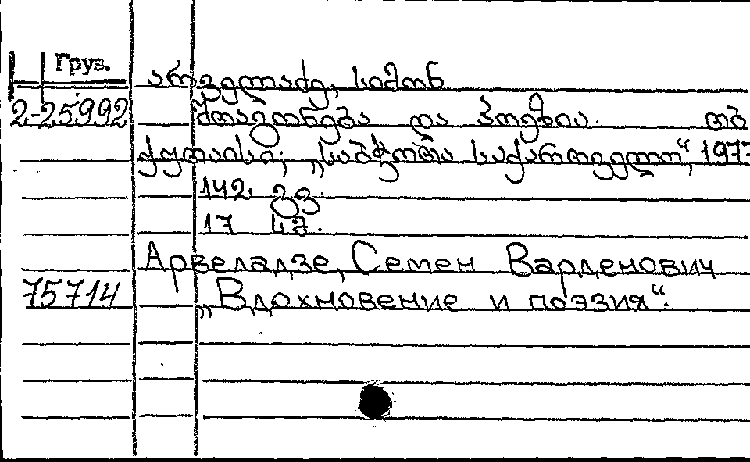 Груз.
არველაძე, სიმონ
2-25992 შთაგონება და პოეზია. თბ
ქუთაისი; „საბჭოთა საქართველო“, 197
142 გვ.
17 კპ.
Арвеладзе, Семен Варденович
75714 „Вдохновение и поэзия“.